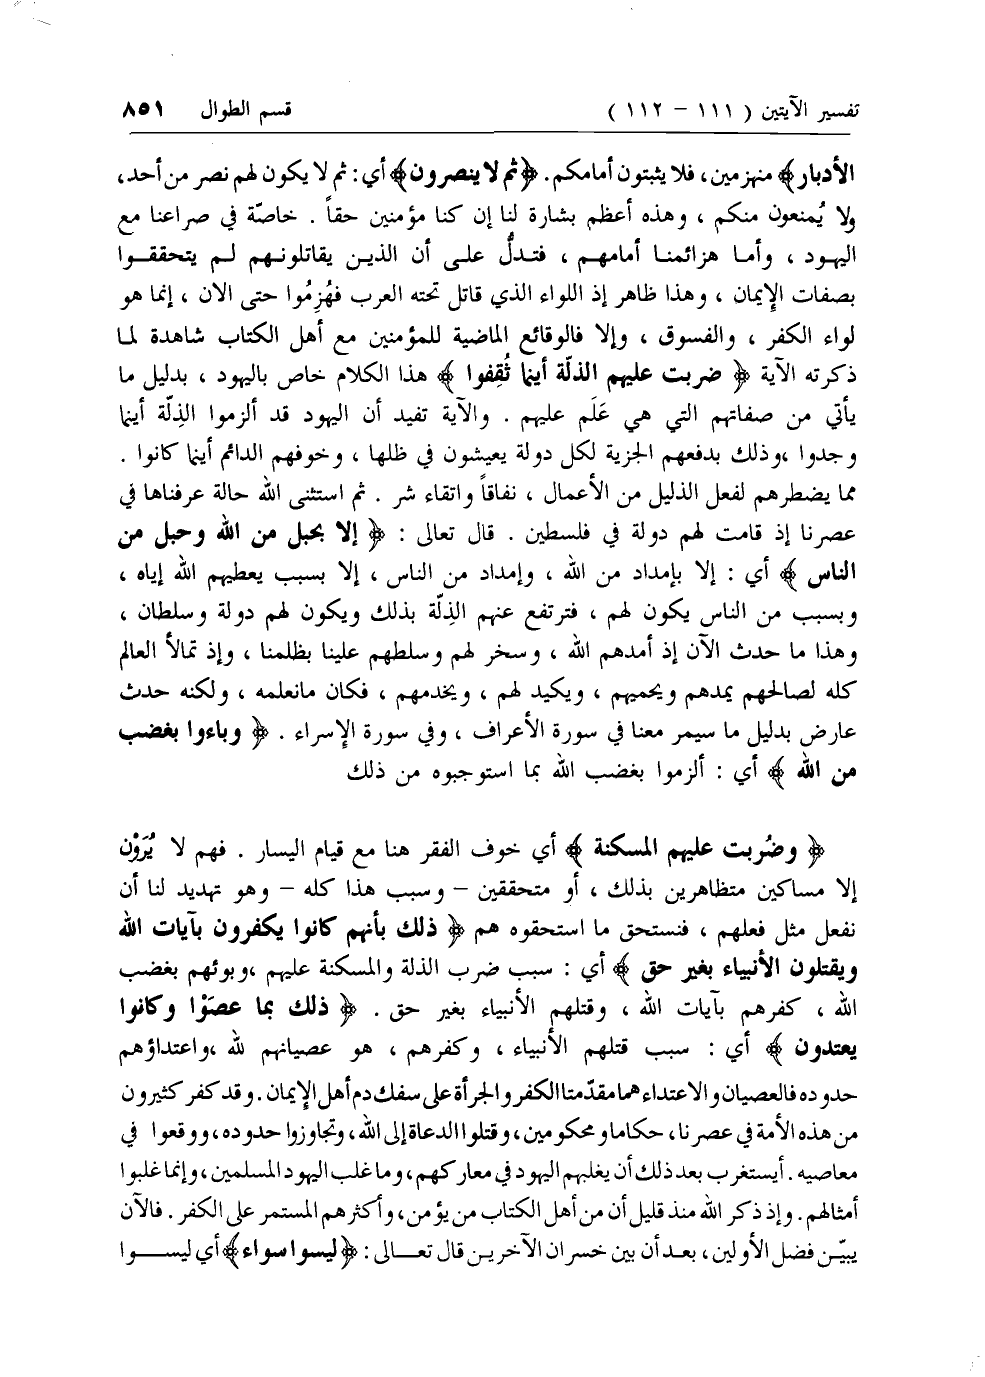 تفسير الآيتين ( ١١١ - ١١٢ ) قسم الطوال ٨٥١
الأدبار﴾ منهزمين، فلا يثبتون أمامكم. ﴿ثم لا ينصرون﴾ أي: ثم لا يكون لهم نصر من أحد،
ولا يُمنعون منكم ، وهذه أعظم بشارة لنا إن كنا مؤمنين حقاً . خاصّة في صراعنا مع
اليهود ، وأما هزائمنا أمامهم ، فتدلُّ على أن الذين يقاتلونهم لم يتحققوا
بصفات الإيمان ، وهذا ظاهر إذ اللواء الذي قاتل تحته العرب فهُزِمُوا حتى الان ، إنما هو
لواء الكفر ، والفسوق ، وإلا فالوقائع الماضية للمؤمنين مع أهل الكتاب شاهدة لما
ذكرته الآية ﴿ ضربت عليهم الذلّة أينما ثُقِفوا ﴾ هذا الكلام خاص باليهود ، بدليل ما
يأتي من صفاتهم التي هي عَلَم عليهم . والآية تفيد أن اليهود قد ألزموا الذِلّة أينما
وجدوا ،وذلك بدفعهم الجزية لكل دولة يعيشون في ظلها ، وخوفهم الدائم أينما كانوا .
مما يضطرهم لفعل الذليل من الأعمال ، نفاقاً واتقاء شر . ثم استثنى الله حالة عرفناها في
عصرنا إذ قامت لهم دولة في فلسطين . قال تعالى : ﴿ إلا بحبل من الله وحبل من
الناس ﴾ أي : إلا بإمداد من الله ، وإمداد من الناس ، إلا بسبب يعطيهم الله إياه ،
وبسبب من الناس يكون لهم ، فترتفع عنهم الذِلّة بذلك ويكون لهم دولة وسلطان ،
وهذا ما حدث الآن إذ أمدهم الله ، وسخر لهم وسلطهم علينا بظلمنا ، وإذ تمالأ العالم
كله لصالحهم يمدهم ويحميهم ، ويكيد لهم ، ويخدمهم ، فكان مانعلمه ، ولكنه حدث
عارض بدليل ما سيمر معنا في سورة الأعراف ، وفي سورة الإسراء . ﴿ وباءوا بغضب
من الله ﴾ أي : ألزموا بغضب الله بما استوجبوه من ذلك
﴿ وضُربت عليهم المسكنة ﴾ أي خوف الفقر هنا مع قيام اليسار . فهم لا يُرَوْن
إلا مساكين متظاهرين بذلك ، أو متحققين – وسبب هذا كله – وهو تهديد لنا أن
نفعل مثل فعلهم ، فنستحق ما استحقوه هم ﴿ ذلك بأنهم كانوا يكفرون بآيات الله
ويقتلون الأنبياء بغير حق ﴾ أي : سبب ضرب الذلة والمسكنة عليهم ،وبوئهم بغضب
الله ، كفرهم بآيات الله ، وقتلهم الأنبياء بغير حق . ﴿ ذلك بما عصَوْا وكانوا
يعتدون ﴾ أي : سبب قتلهم الأنبياء ، وكفرهم ، هو عصيانهم لله ،واعتداؤهم
حدوده فالعصيان والاعتداء هما مقدّمتا الكفر والجرأة على سفك دم أهل الإيمان. وقد كفر كثيرون
من هذه الأمة في عصرنا، حكاما ومحكومين، وقتلوا الدعاة إلى الله، وتجاوزوا حدوده، ووقعوا في
معاصيه. أيستغرب بعد ذلك أن يغلبهم اليهود في معاركهم، وما غلب اليهود المسلمين، وإنما غلبوا
أمثالهم. وإذ ذكر الله منذ قليل أن من أهل الكتاب من يؤمن، وأكثرهم المستمر على الكفر. فالآن
يبيّن فضل الأولين، بعد أن بين خسران الآخرين قال تعالى: ﴿ليسوا سواء﴾ أي ليسوا